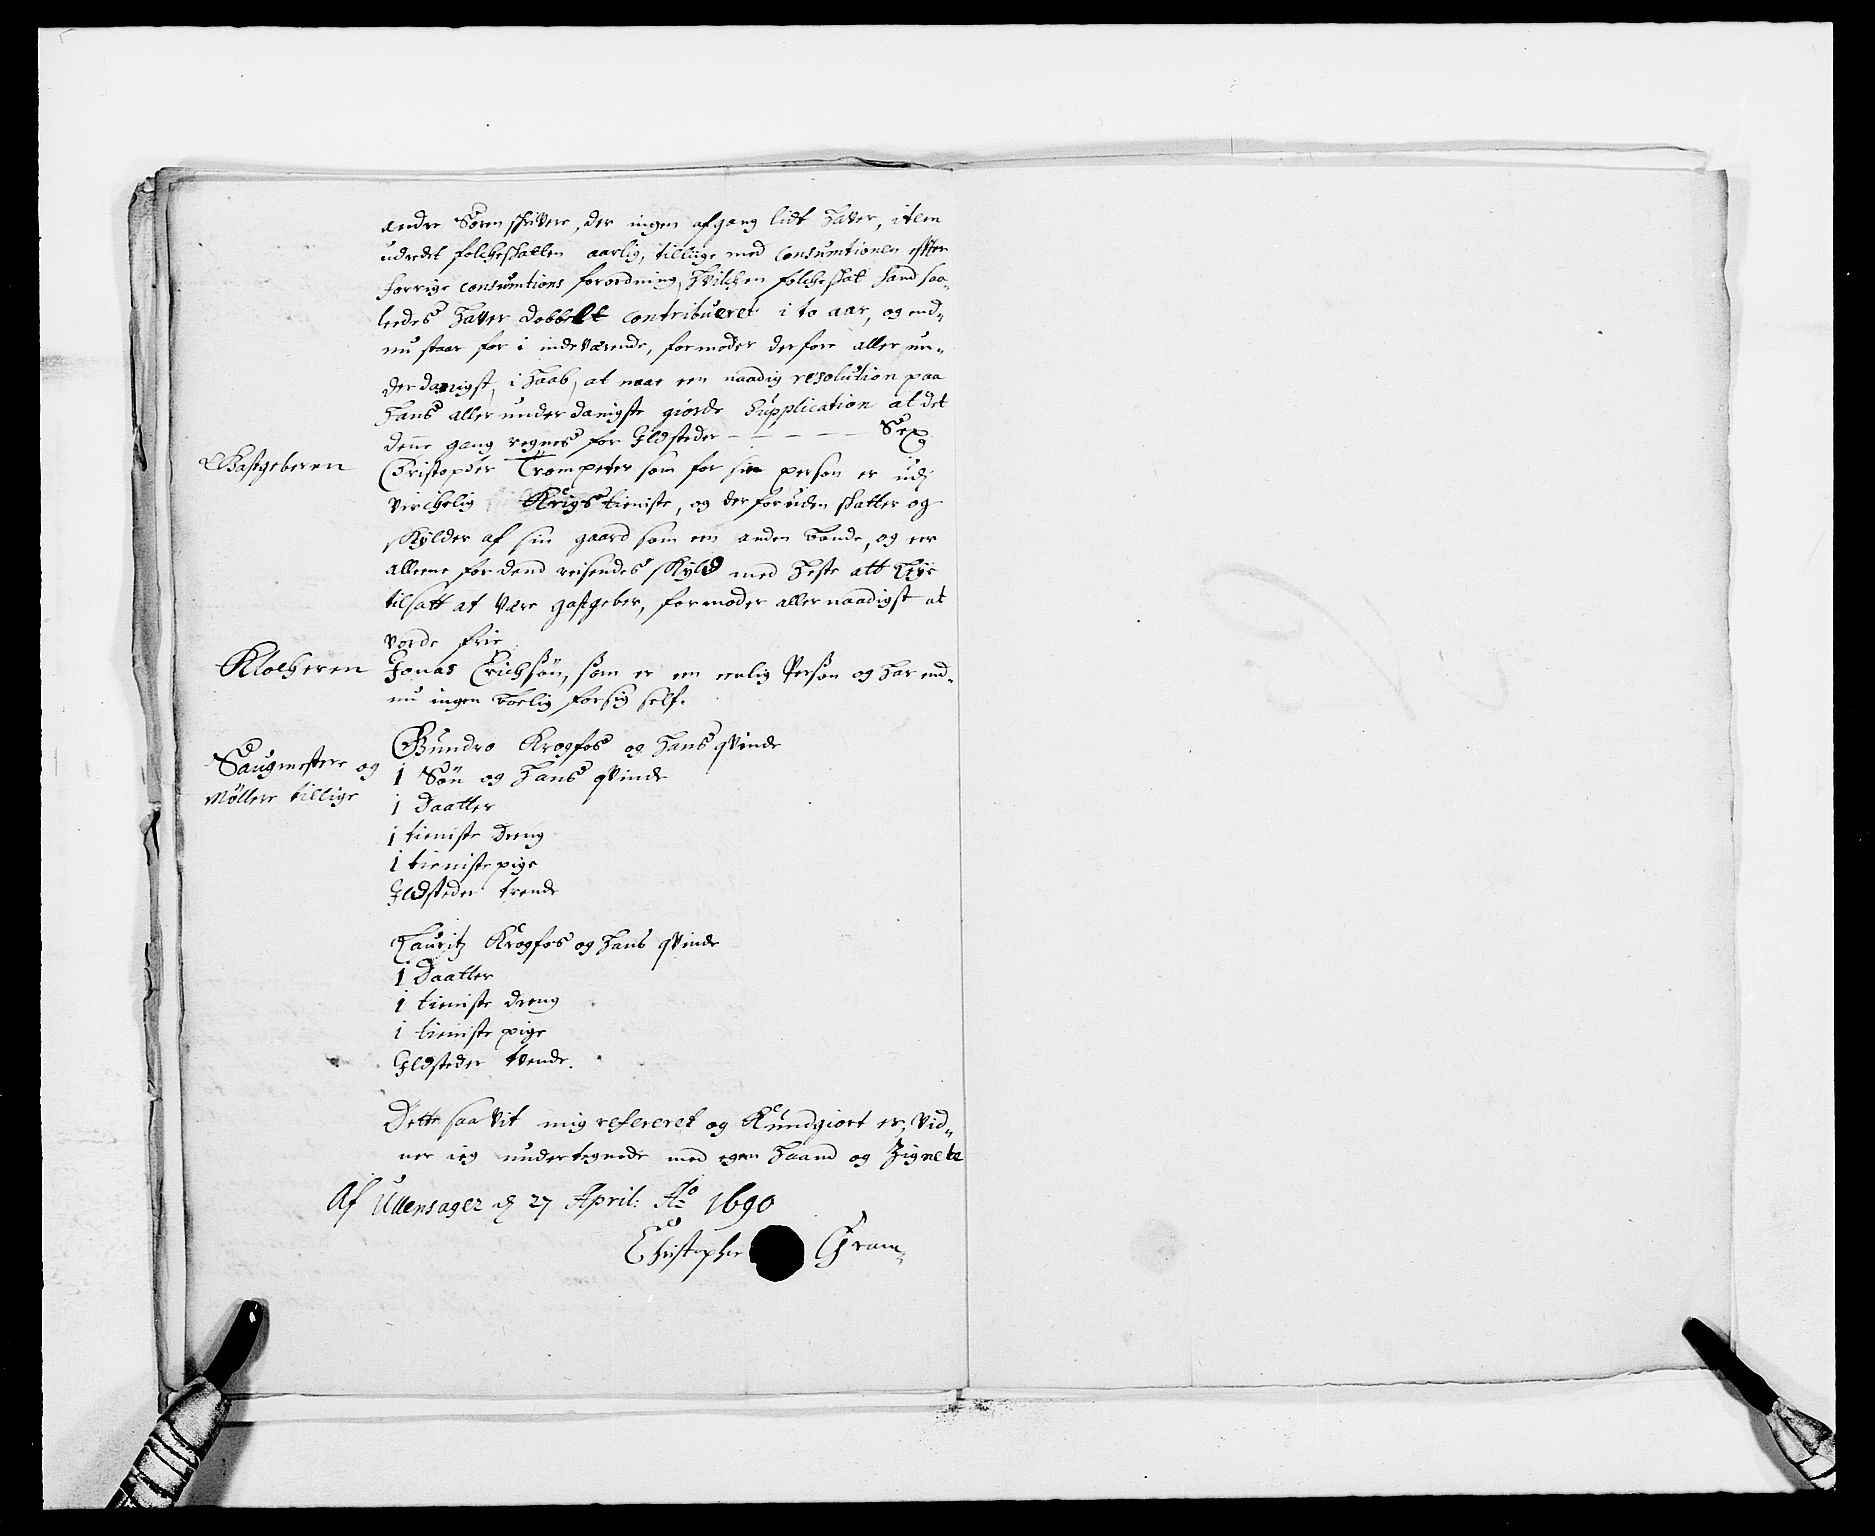 andre Sorenskrivere, der ingen afgang lidt hafver, item
udredet folcheskatten aarlig, tillige med Consumtionen effter
forrige Consumtions forordning, hvilchen folcheskat hand saa-
ledes hafver dobbelt Contribueret i to aar, og end-
nu staar for i indeværende, formoder derfore aller un-
derdanigst, i haab, at naae een naadig resolution paa
hans aller underdanigste giorde Supplication at det
denne gang regnes for Ildsteder — — — — Sex
Gastgeberen Christopher Trompeter som for sin person er udj
virchelig Krigs tieniste, og der foruden skatter og
skylder af sin gaard som een anden bonde, og er
alleene for dend reisendes skyld med heste att
tilsatt at være gastgeber, formoder aller naadigst at
vorde frie
Klocheren Jonas Erichsøn, som er een enlig Persøn og har end-
nu ingen boelig for sig self.
Saugmestere og
Møllere tillige
Gundro Krogfos og hans qvinde
1 Søn og hans qvinde
1 Daatter
1 tieniste dreng
1 tienistepige
Ildsteder trende
Lauritz Krogfos og hans qvinde
1 Daatter
1 tieniste dreng
1 tieniste pige
Ildsteder tvende.
Dette saa vit mig refereret og Kundgiort er, vid-
ner ieg undertegnede med egen haand og Zignete
Af Ullensager d 27 April: Ao 1690
Christopher Gram